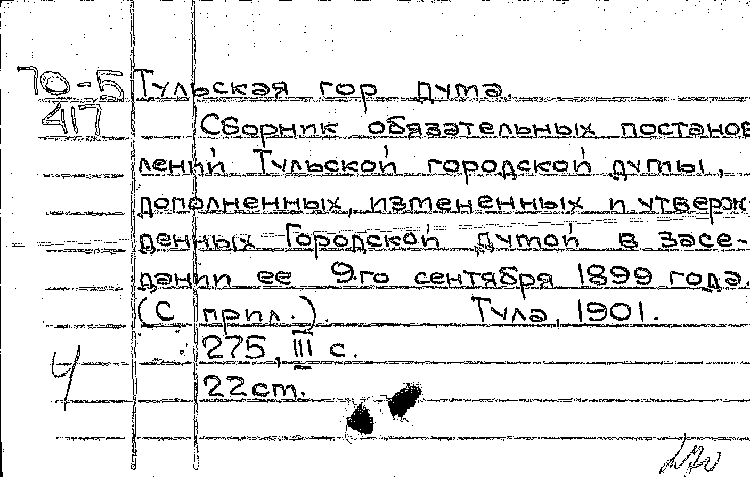 70-5 Тульская гор дума.
417 Сборник обязательных постанов
лений Тульской городской думы,
дополненных, измененных и утверж-
денных Городской Думой в засе-
дании ее 9го сентября 1899 года.
(С прил.). Тула, 1901.
275, III с.
22 cm.